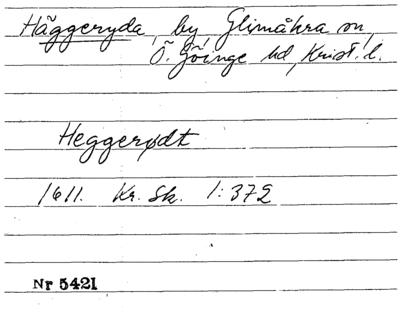 Häggeryda, by Glimåkra sn,
Ö. Göinge hd, Krist. l.
Heggerødt
1611. Kr. Sk. 1:372
Nr 5421